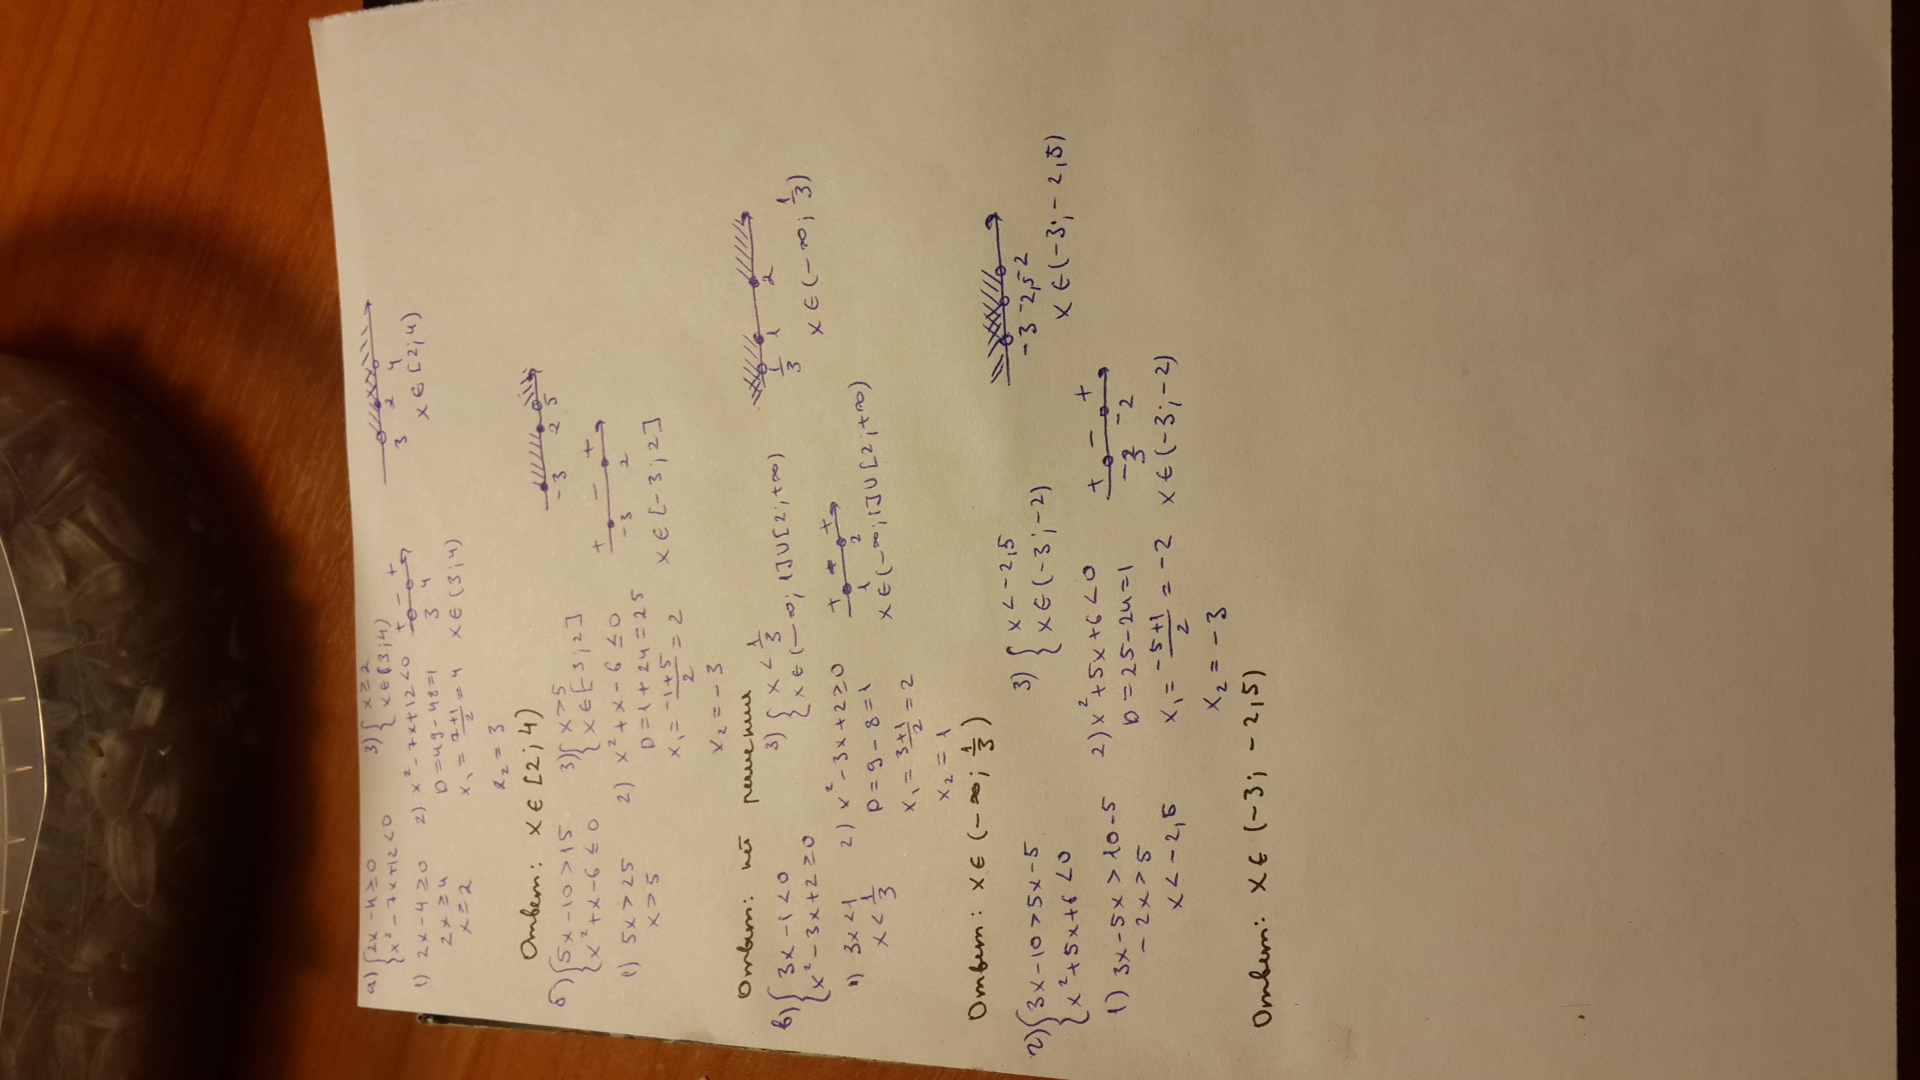 а) { 2x-4≥0
{ x²-7x+12<0
1) 2x-4≥0
2x≥4
x≥2
2) x²-7x+12<0
D=49-48=1
x₁=(7+1)/2=4
x₂=3
+ - +
3 4
x∈(3;4)
3) { x≥2
{ x∈(3;4)
3 2 4
x∈[2;4)
Ответ: x∈[2;4)
б) { 5x-10>15
{ x²+x-6≤0
1) 5x>25
x>5
2) x²+x-6≤0
D=1+24=25
x₁=(-1+5)/2=2
x₂=-3
+ - +
-3 2
x∈[-3;2]
3) { x>5
{ x∈[-3;2]
-3 2 5
Ответ: нет решении
в) { 3x-1<0
{ x²-3x+2≥0
1) 3x<1
x<1/3
2) x²-3x+2≥0
D=9-8=1
x₁=(3+1)/2=2
x₂=1
+ - +
1 2
x∈(-∞;1]∪[2;+∞)
3) { x<1/3
{ x∈(-∞;1]∪[2;+∞)
1/3 1 2
x∈(-∞;1/3)
Ответ: x∈(-∞;1/3)
г) { 3x-10>5x-5
{ x²+5x+6<0
1) 3x-5x>10-5
-2x>5
x<-2,5
2) x²+5x+6<0
D=25-24=1
x₁=(-5+1)/2=-2
x₂=-3
+ - +
-3 -2
x∈(-3;-2)
3) { x<-2,5
{ x∈(-3;-2)
-3 -2,5 -2
x∈(-3;-2,5)
Ответ: x∈(-3;-2,5)